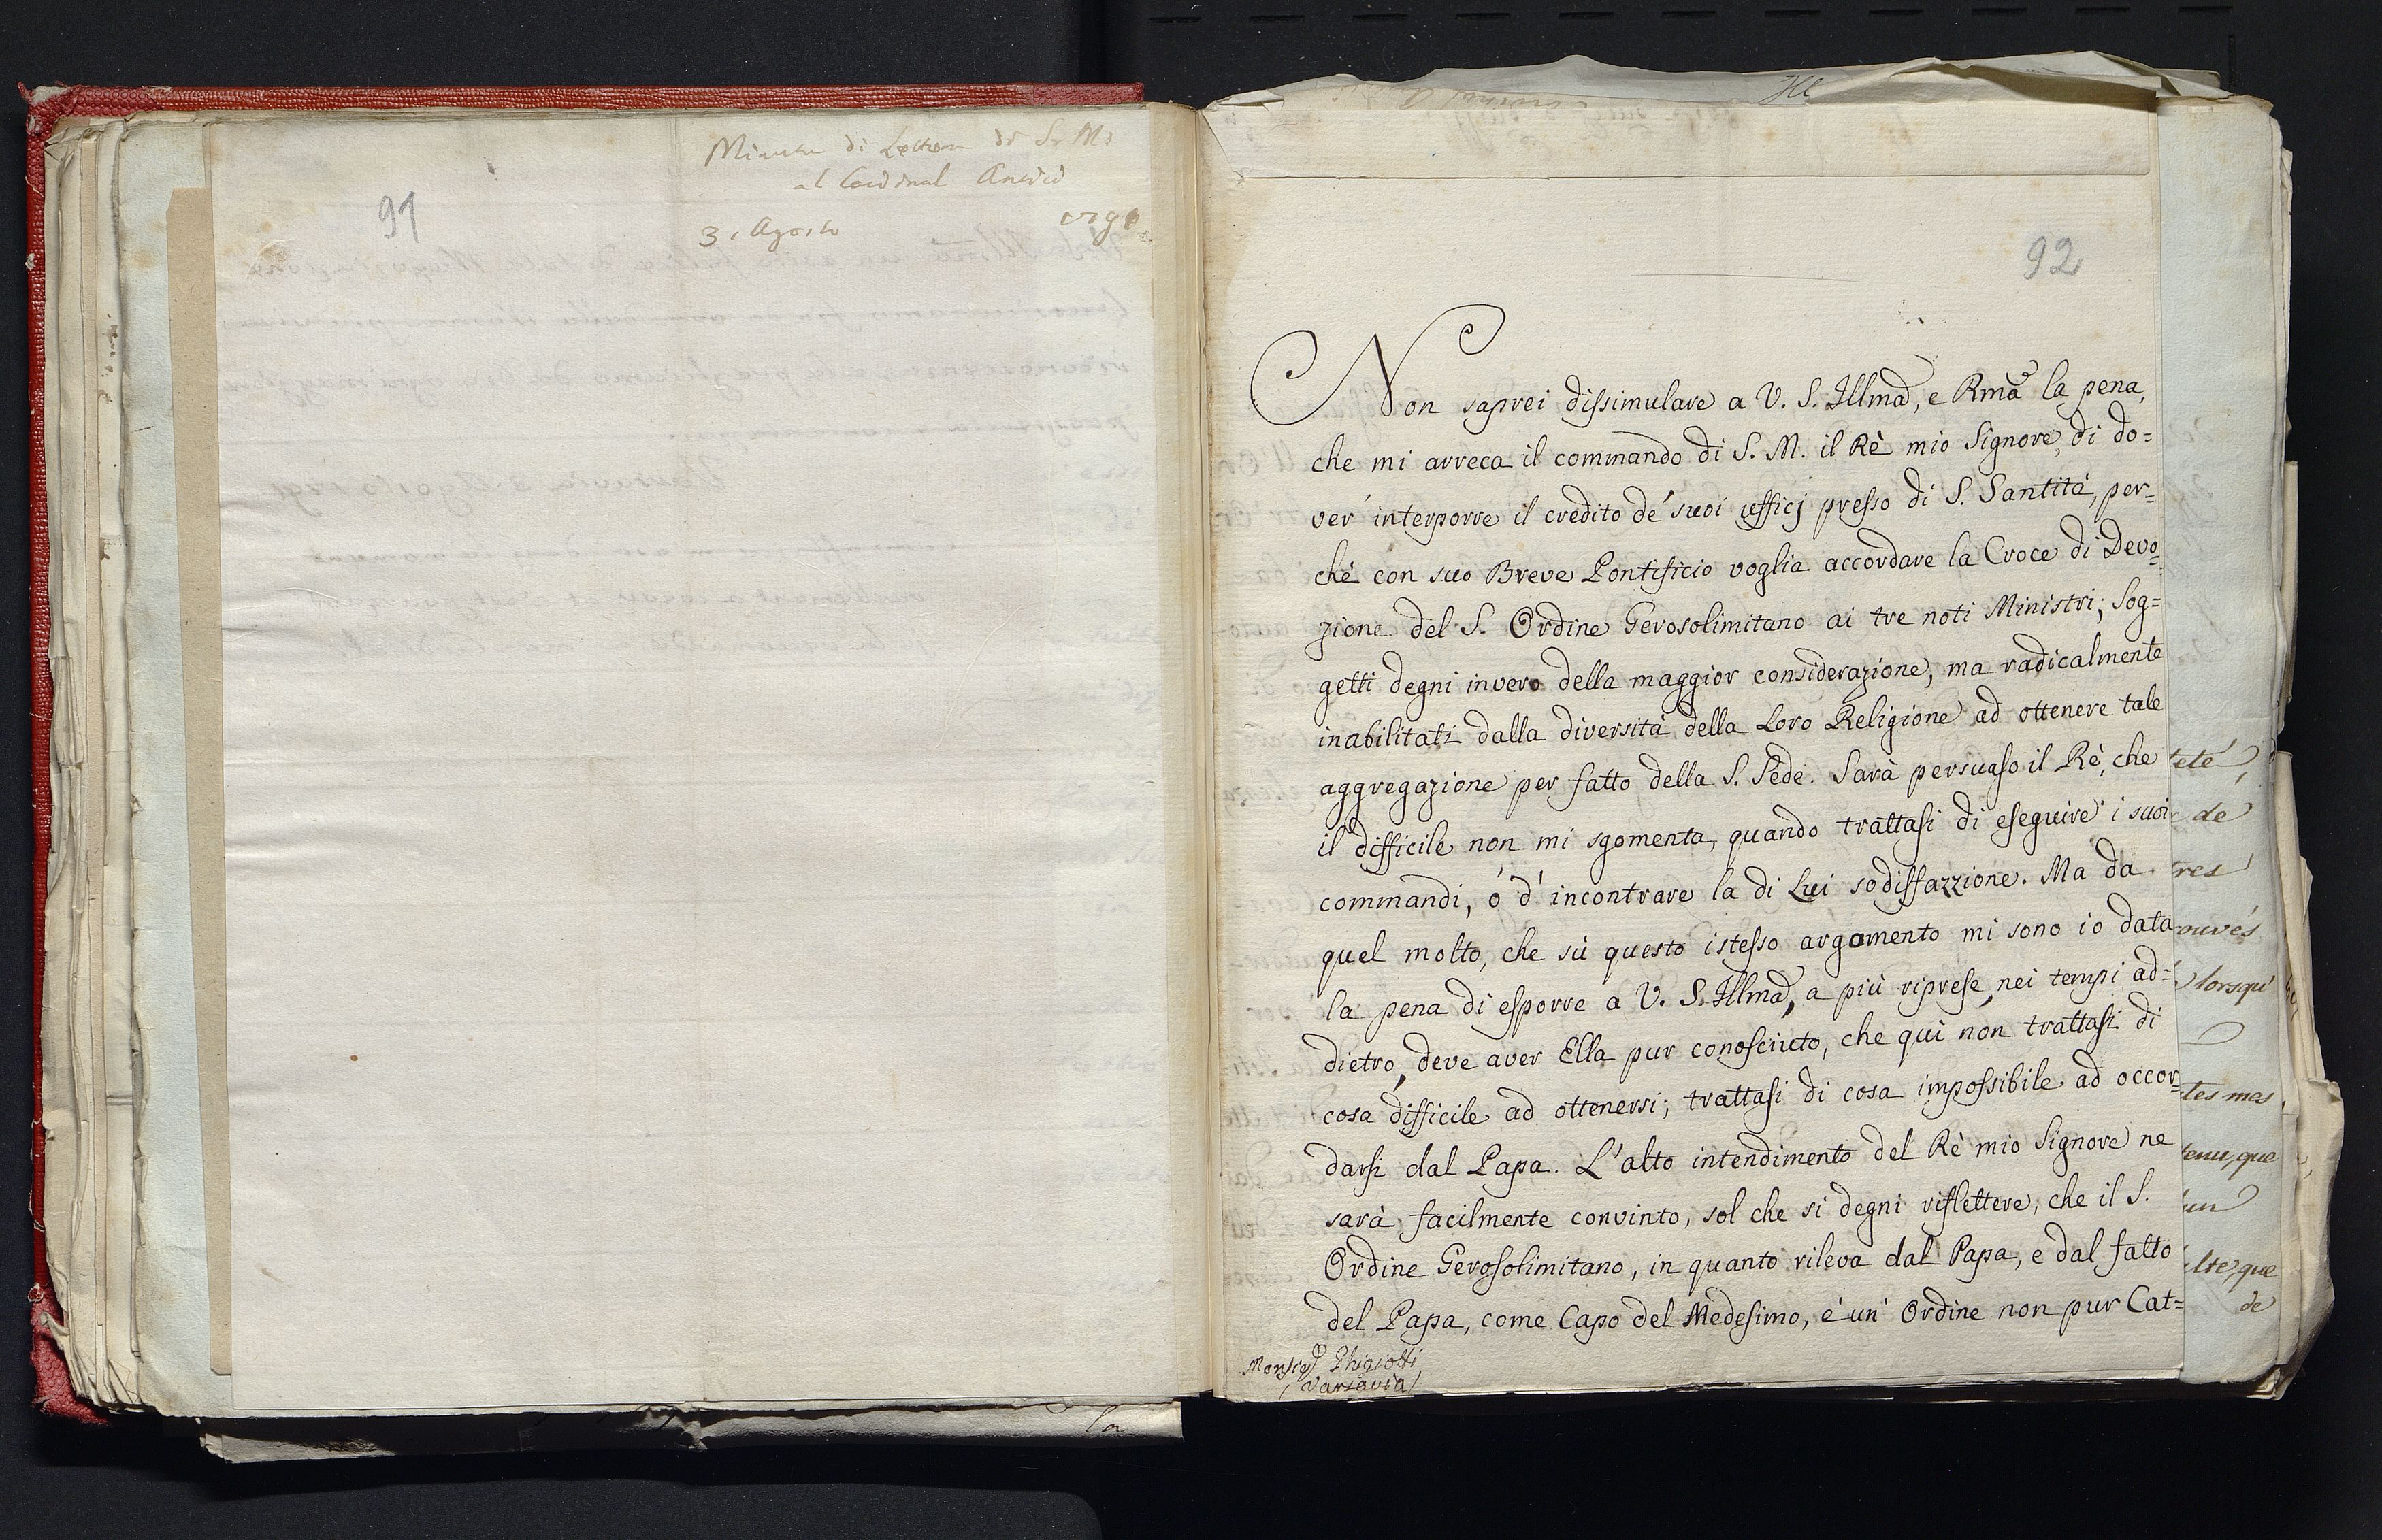 Minuta di Lettera di S. M.
al Cardinal Antici
3. Agosto 1791
91
92
Non saprei dissimulare a V. S. Illma, e Rma la pena,
che mi arreca il commando di S. M. il Rè mio Signore, di do=
ver interporre il credito de' suoi ufficj presso di S. Santità, per=
chè con suo Breve Pontificio voglia accordare la Croce di Devo=
zione del S. Ordine Gerosolimitano ai tre noti Ministri; Sog=
getti degni invero della maggior considerazione, ma radicalmente
inabilitati dalla diversità della Loro Religione ad ottenere tale
aggregazione per fatto della S. Sede. Sarà persuaso il Rè, che
il difficile non mi sgomenta, quando trattasi di eseguire i suoi
commandi, ó d' incontrare la di Lui sodisfazzione. Ma da
quel molto, che sù questo istesso argomento mi sono io data
la pena di esporre a V. S. Illma, a più riprese, nei tempi ad=
dietro, deve aver Ella pur conosciuto, che quì non trattasi di
cosa difficile ad ottenersi; trattasi di cosa impossibile ad accor=
darsi dal Papa. L'alto intendimento del Rè mio Signore ne
sarà facilmente convinto, sol che si degni riflettere, che il S.
Ordine Gerosolimitano, in quanto rileva dal Papa, e dal fatto
del Papa, come Capo del Medesimo, é un' Ordine non pur Cat=
Monsigr Ghigiotti
(Varsavia)
teté,
de
tres
ouvés
lorsqu'
tes mes
tenu, que
un
lte, que
de
la